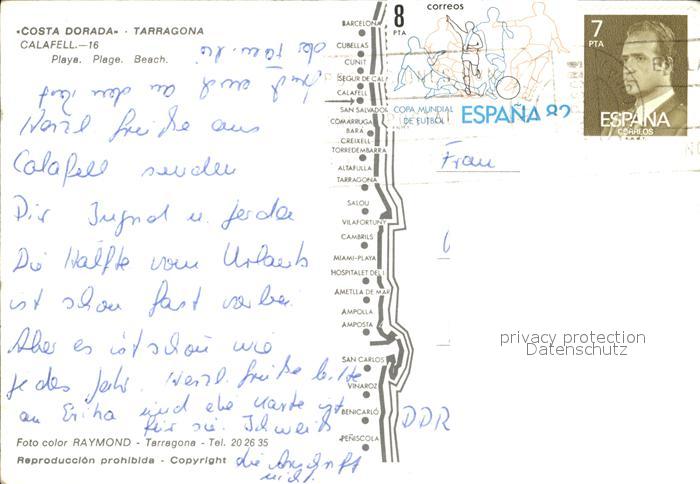 «COSTA DORADA» · TARRAGONA
CALAFELL.—16
Playa. Plage. Beach.
Herzl. Grüße aus
Calafell senden
Dir Ingrid u. Gerda
Die Hälfte vom Urlaub
ist schon fast vorbei.
Aber es ist schön wie
jedes Jahr. Herzl. Grüße bitte
an Erika und die Karte ist
für sie. Ich weiß
die Anschrift
nicht.
Foto color RAYMOND - Tarragona - Tel. 20 26 35
Reproducción prohibida - Copyright
BARCELONA
CUBELLAS
CUNIT
SEGUR DE CAL
CALAFELL
SAN SALVADOR
COMARRUGA
BARÁ
CREIXELL
TORREDEMBARRA
ALTAFULLA
TARRAGONA
SALOU
VILAFORTUNY
CAMBRILS
MIAMI-PLAYA
HOSPITALET DEL I
AMETLLA DE MAR
AMPOLLA
AMPOSTA
SAN CARLOS
VINAROZ
BENICARLÓ
PEÑISCOLA
8
PTA
correos
COPA MUNDIAL
DE FUTBOL
ESPAÑA 82
7
PTA
ESPAÑA
CORREOS
Frau
DDR
privacy protection
Datenschutz